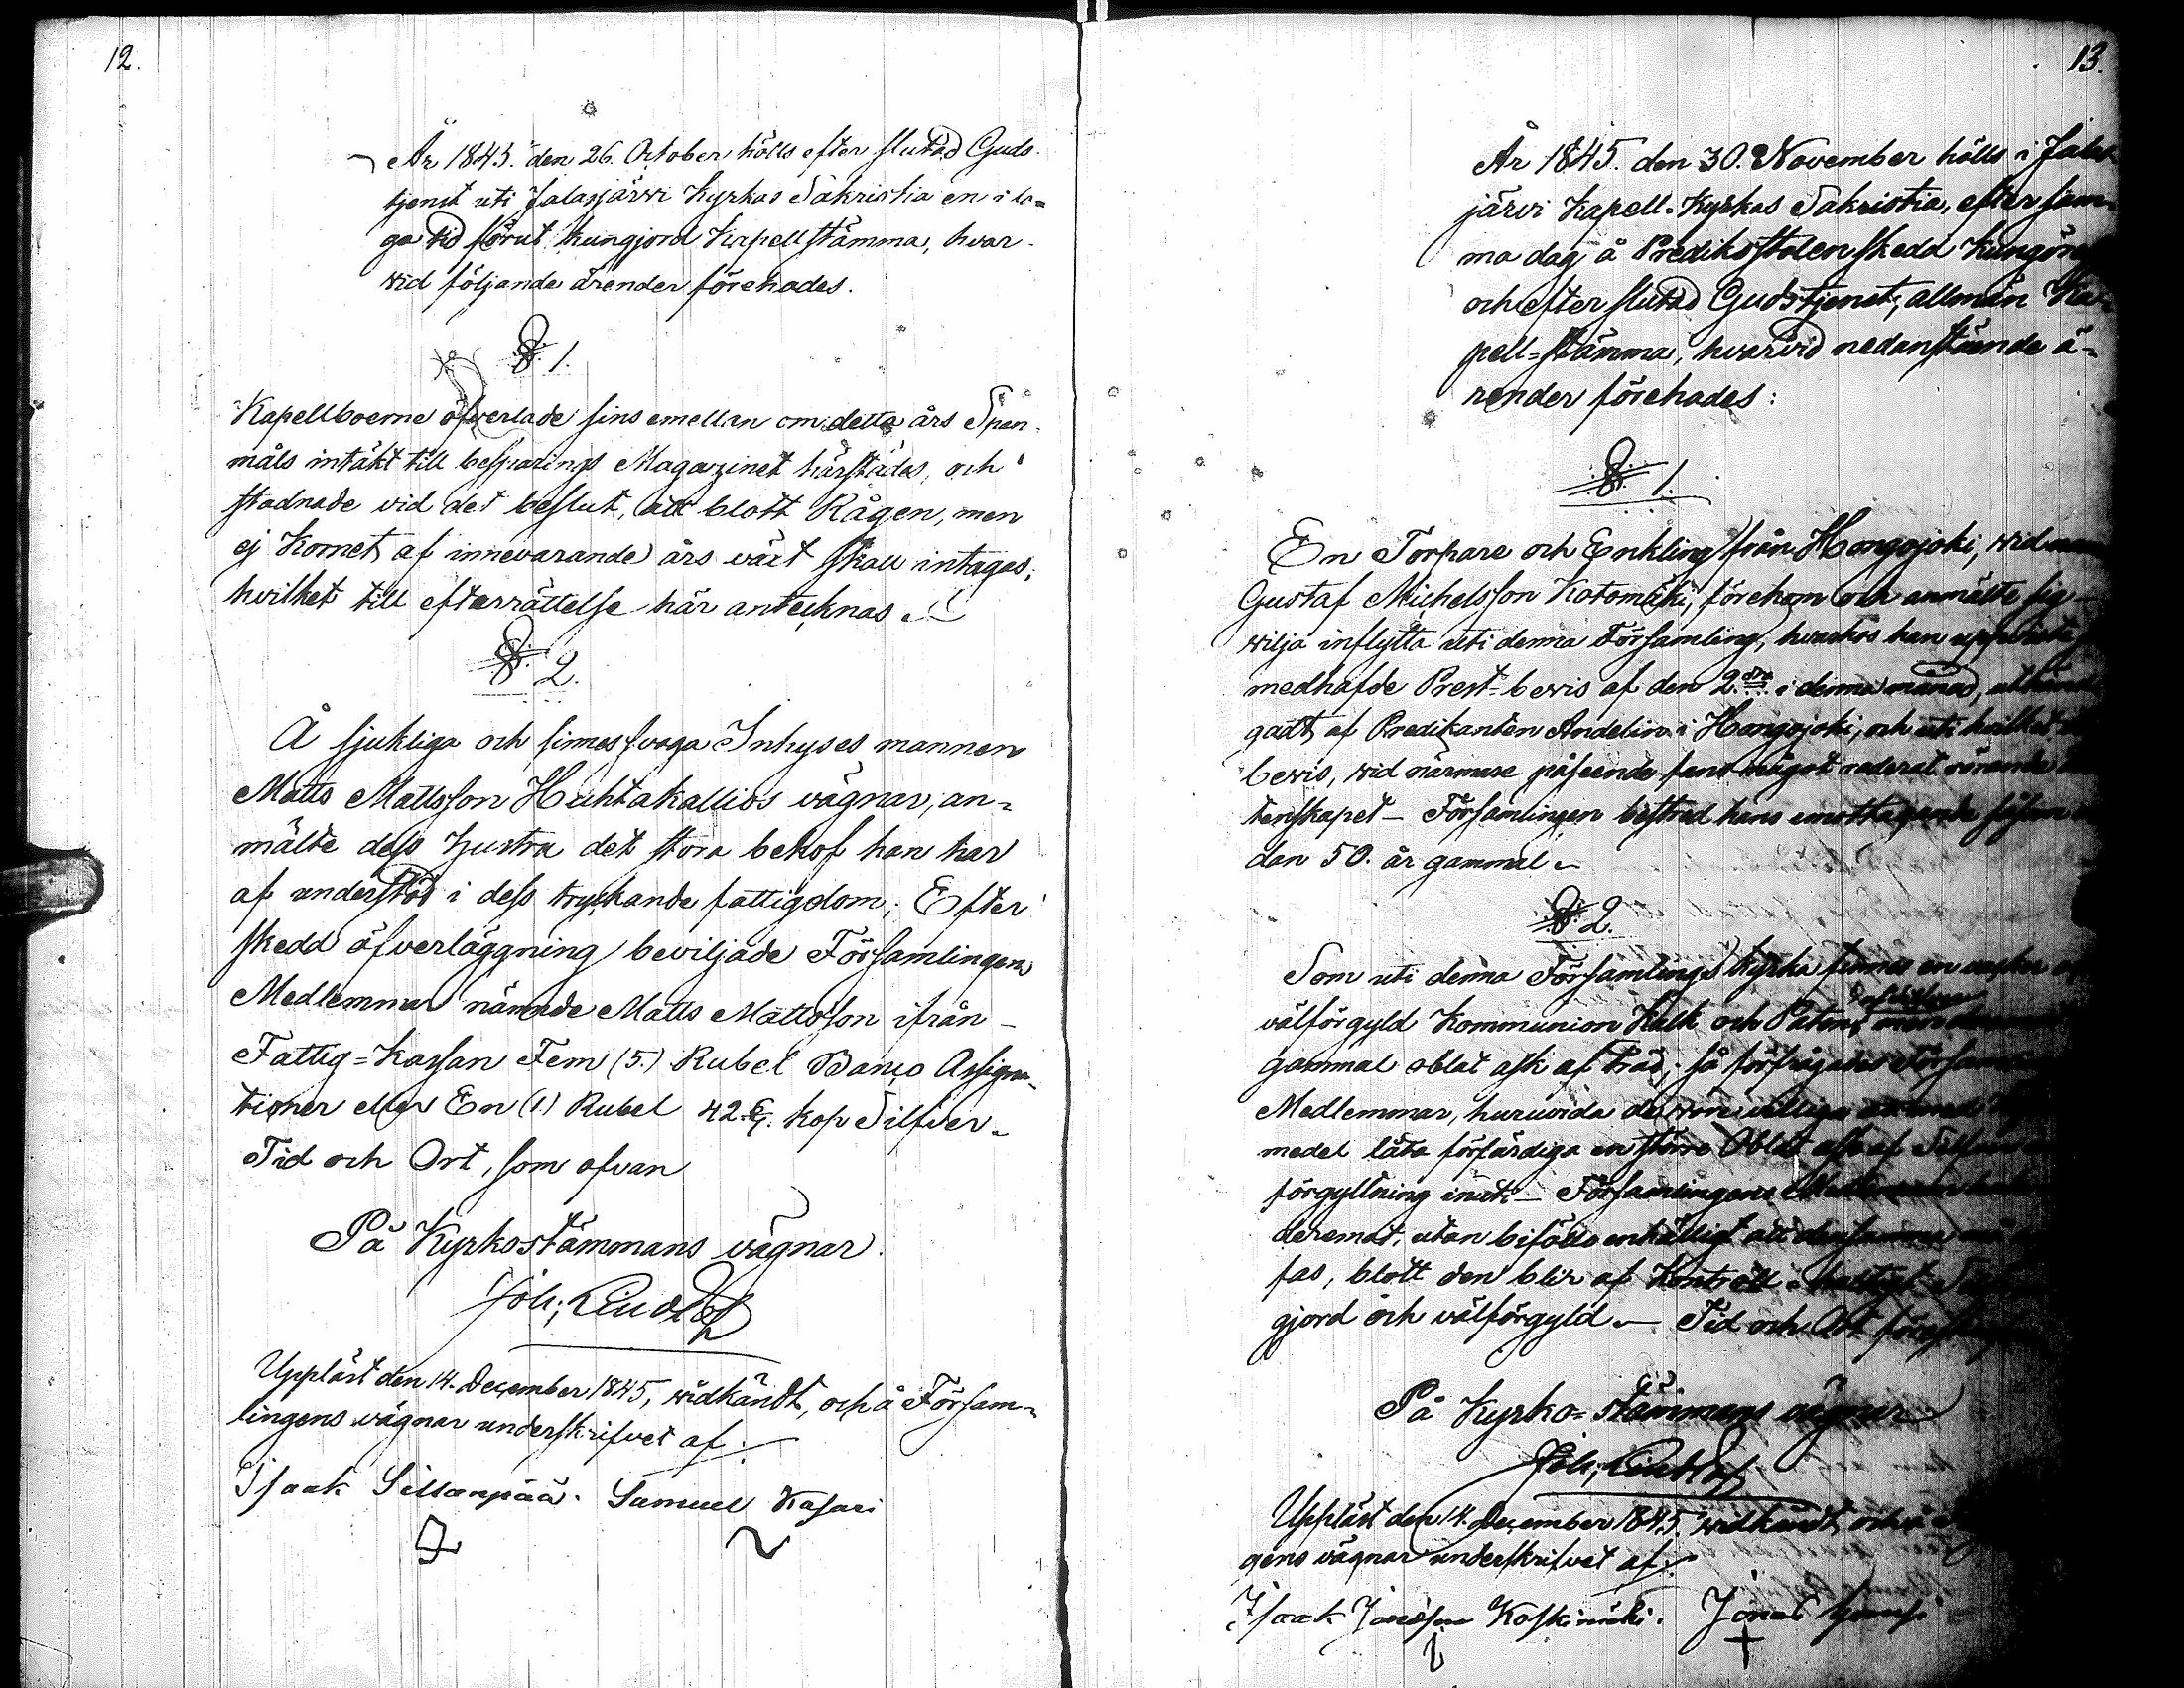 12.
År 1845. den 26. October hölls efter slutad Guds-
tjenst uti Jalasjärvi Kyrkas Sakristia en i la-
ga tid förut kungjord Kapellstämma, hvar-
vid följande ärender förehades.
§ 1.
Kapellboerne öfverlade sins emellan om detta års Span-
måls intäkt till besparings Magazinet härstädes, och
stadnade vid det beslut, att blott Rågen, men
ej Kornet af innevarande års växt skall intagas;
hvilket till efterrättelse här antecknas.
§ 2.
Å sjukliga och sinnessvaga Inhyses mannen
Matts Mattsson Huhtakallios vägnar, an-
mälte dess Hustru det stora behof han har
af understöd i dess tryckande fattigdom; Efter
skedd öfverläggning beviljade Församlingens
Medlemmar nämnde Matts Mattsson ifrån
Fattig=Kassan Fem (5.) Rubel Banco Assigna-
tioner eller En (1.) Rubel 42 6/7. kop Silfver.
Tid och Ort, som ofvan
På Kyrkostämmans vägnar.
Joh; Lindlöf
Uppläst den 14. December 1845, vidkändt, och å Försam-
lingens vägnar underskrifvet af:
Isaak Sillanpää. Samuel Kasari
13.
År 1845. den 30. November hölls i Jalas
järvi Kapell-Kyrkas Sakristia, efter sam-
ma dag å Predikostolen skedd Kungöre
och efter slutad Gudstjenst, allmän Ka-
pell=stämma, hvarvid nedanstående ä-
render förehades:
§ 1.
En Torpare och Enkling från Hongojoki, vid
Gustaf Michelsson Katomäki, förekom och anmälte sig
vilja inflytta uti denna Församling, hvarhos han uppviste
medhafde Prest=bevis af den 2dra i denna månad,
gadt af Predikanten Andelin i Hongojoki, och uti hvilket
bevis, vid närmare påseende fans något raderat rörande
tenskapet — Församlingen bestred hans emottagande såsom
dan 50. år gammal.
§ 2.
Som uti denna Församlings Kyrka finnes en vacker
välförgyld Kommunion Kalk och Paten,
gammal oblat ask af träd; så förfrågades Försam
Medlemmar, huruvida de voro villiga att med
medel låta förfärdiga en större Oblat ask af Silfver
förgyllning inuti — Församlingens Medlemmar
deremot, utan biföllo enhälligt att densamma må
fas, blott den blir af Kontroll-haltigt
gjord och välförgyld — Tid och Ort
På Kyrko=stämmans vägnar
Joh; Lindlöf
Uppläst den 14. December 1845, vidkändt, och å
gens vägnar underskrifvet af:
Isaak Jonasson Koskimäki. Jonas